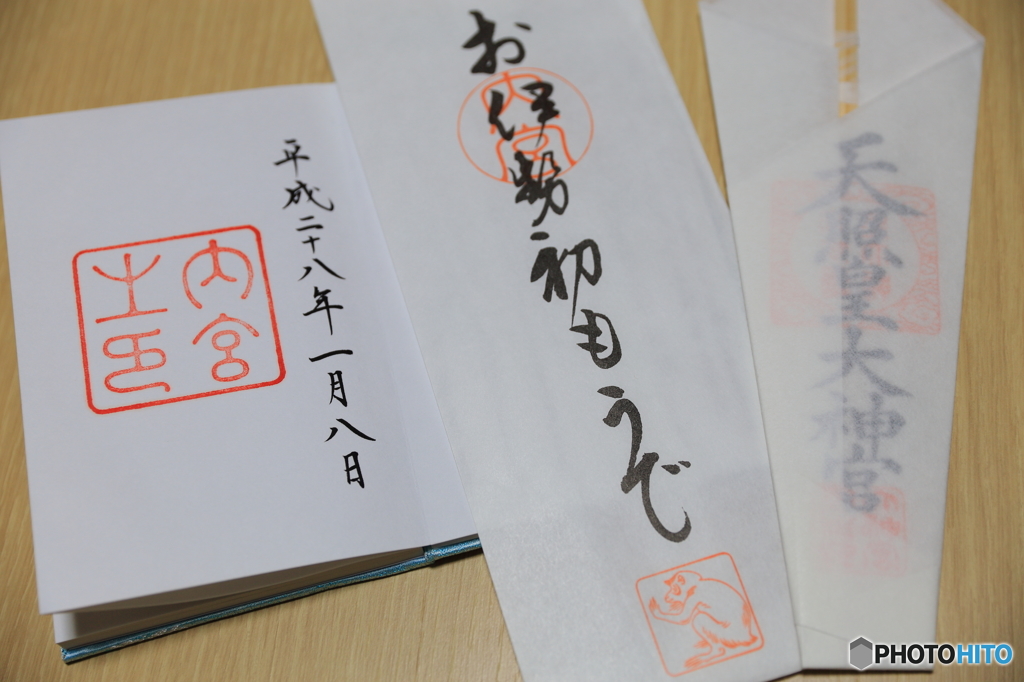 平成二十八年一月八日
内宮
之印
お伊勢初もうで
内宮
天照皇大神宮
PHOTOHITO